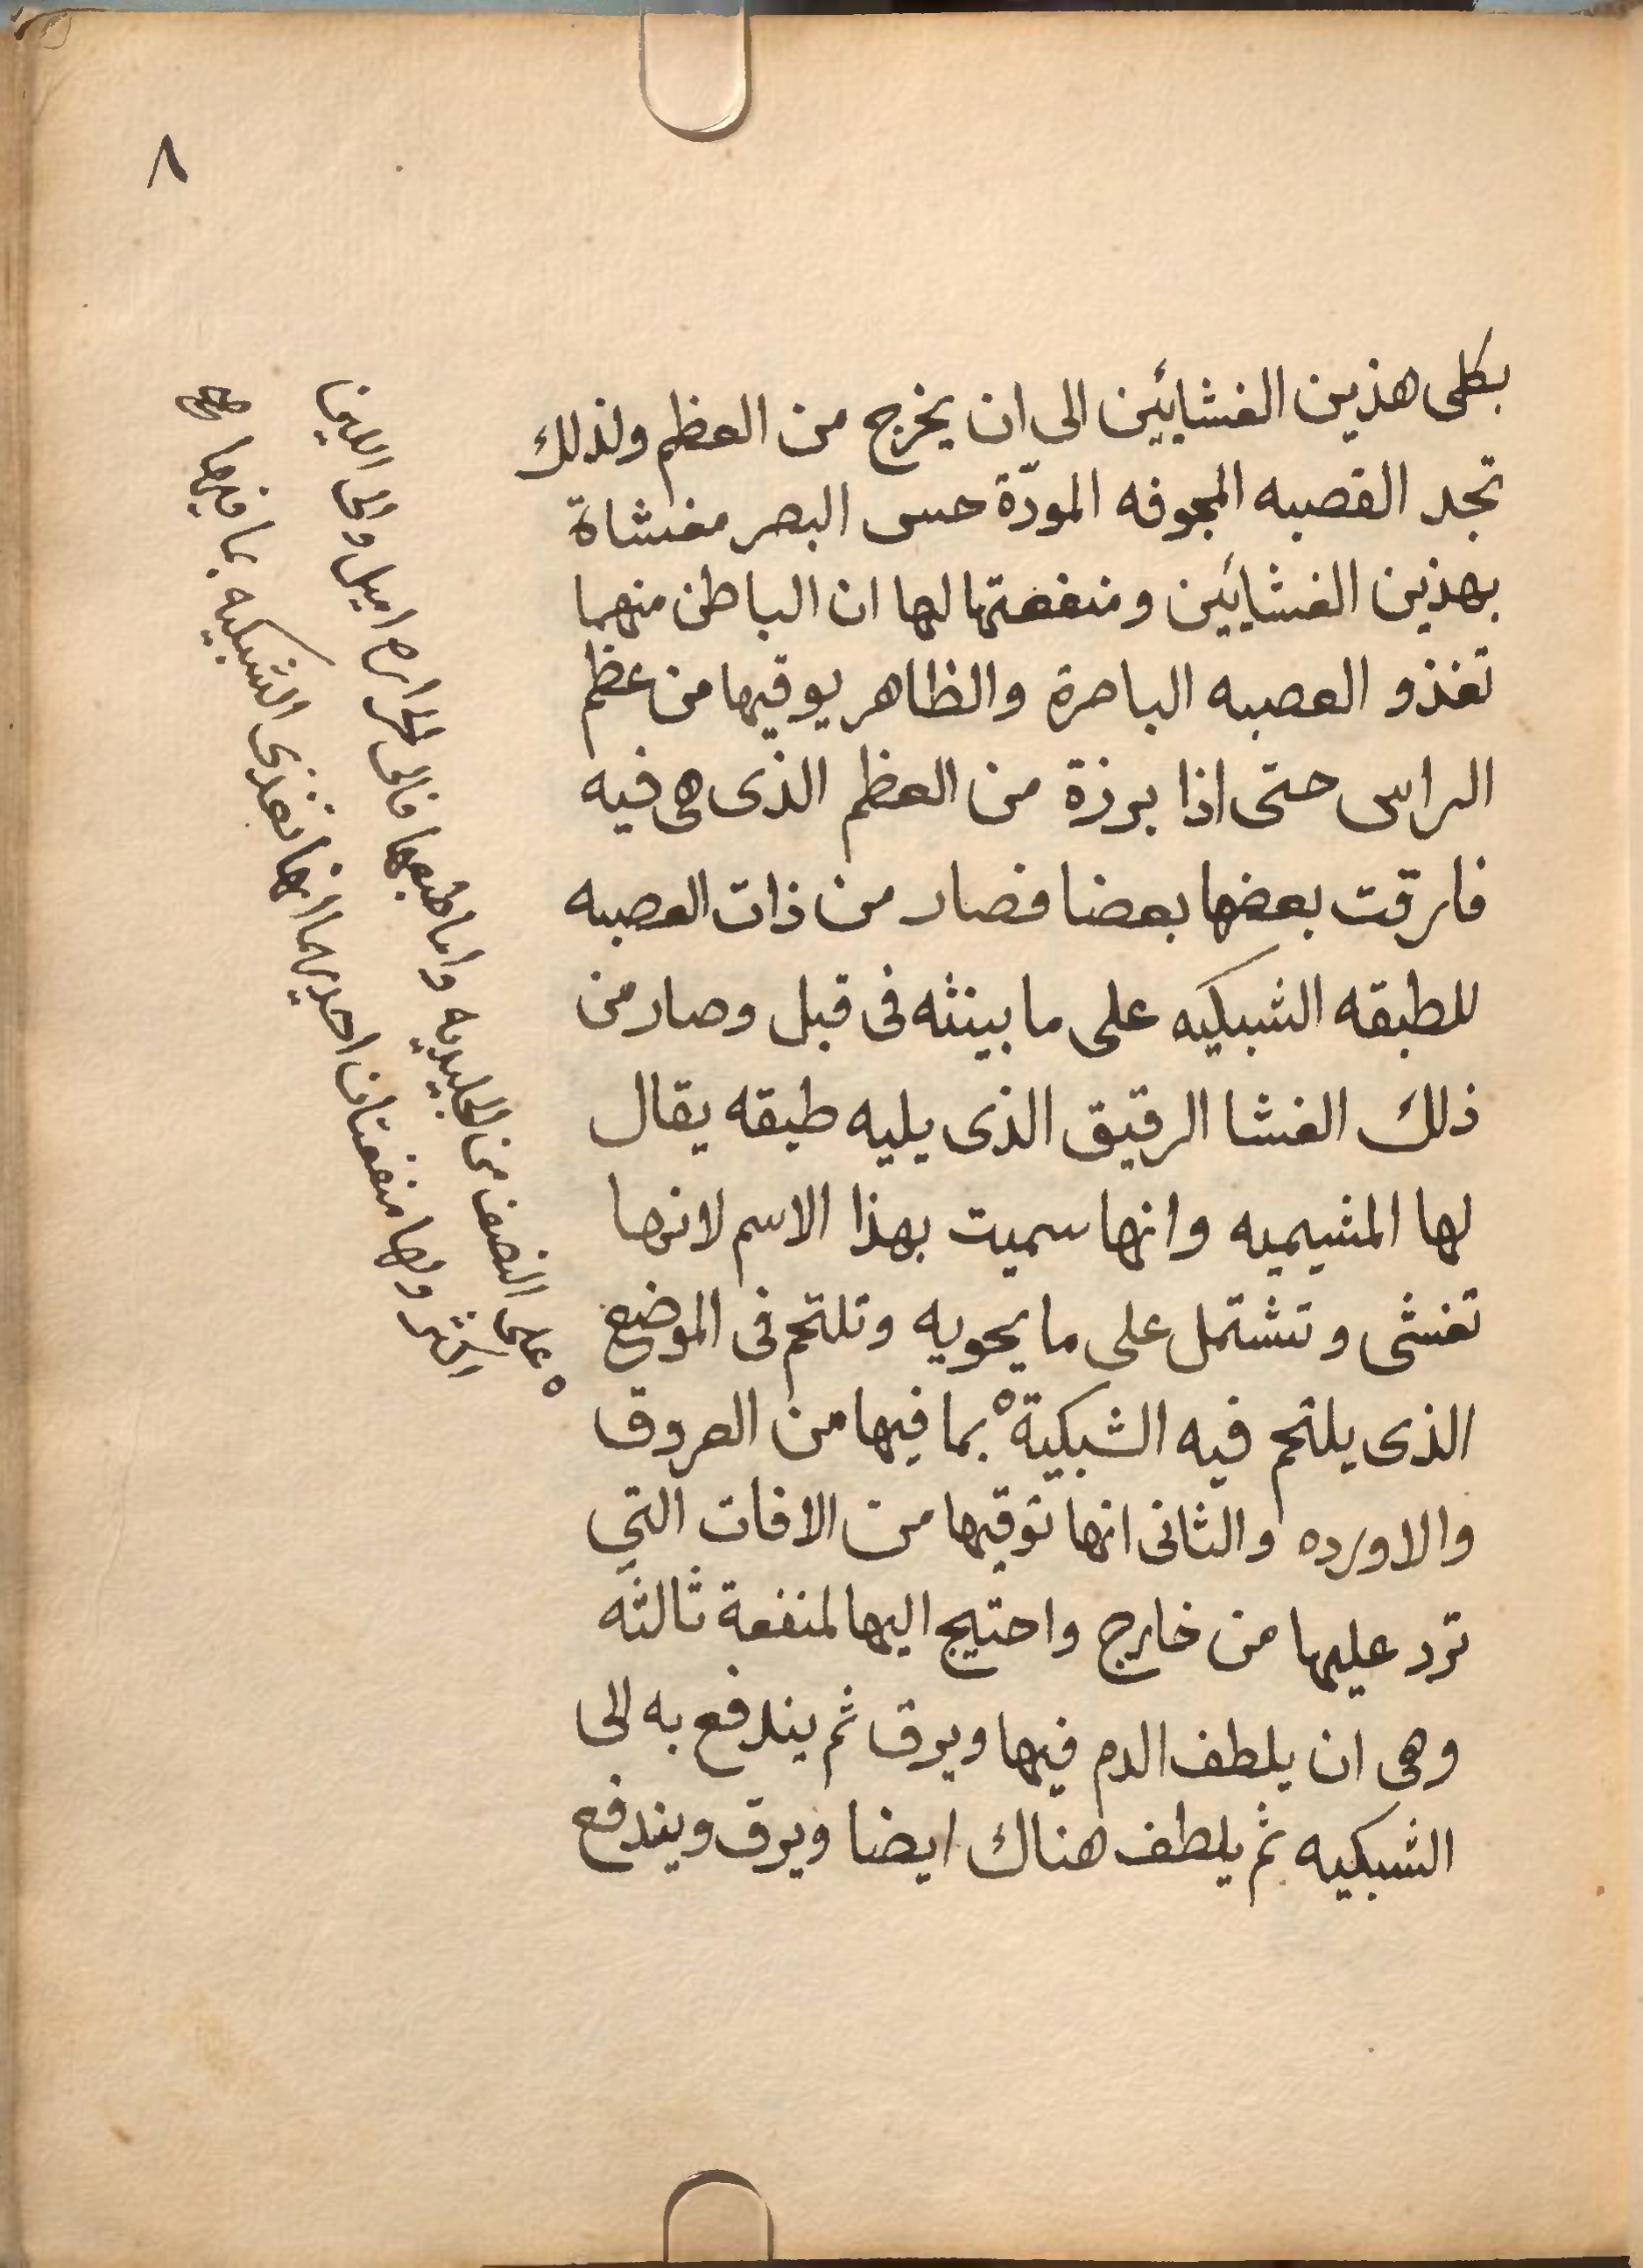 ٨
بكلى هذين الغشايين الى ان يخرج من العظم ولذلك
تجد القصبه المجوفه المودّة حس البصر مغشاة
بهذين الغشايين ومنفعتها لها ان الباطن منهما
تغذو العصبه الباصرة والظاهر يوقيها من عظم
الراس حتى اذا برزة من العظم الذى هى فيه
فارقت بعضها بعضا فصار من ذات العصبه
للطبقه الشبكيه على ما بينته فى قبل وصار من
ذلك الغشا الرقيق الذى يليه طبقه يقال
لها المشيميه وانها سميت بهذا الاسم لانها
تغشى وتشتمل على ما يحويه وتلتحم فى الموضع
الذى يلتحم فيه الشبكية ٥ بما فيها من العروق
والاورده والثانى انها توقيها من الافات التى
ترد عليها من خارج واحتيج اليها لمنفعة ثالثه
وهى ان يلطف الدم فيها ويرق ثم يندفع به الى
الشبكيه ثم يلطف هناك ايضا ويرق ويندفع
٥ على النصف من الجليديه واما طبعها فالى الحراره اميل والى اللين
اكثر ولها منفعتان احديهما انها تغذى الشبكيه بما فيها صح